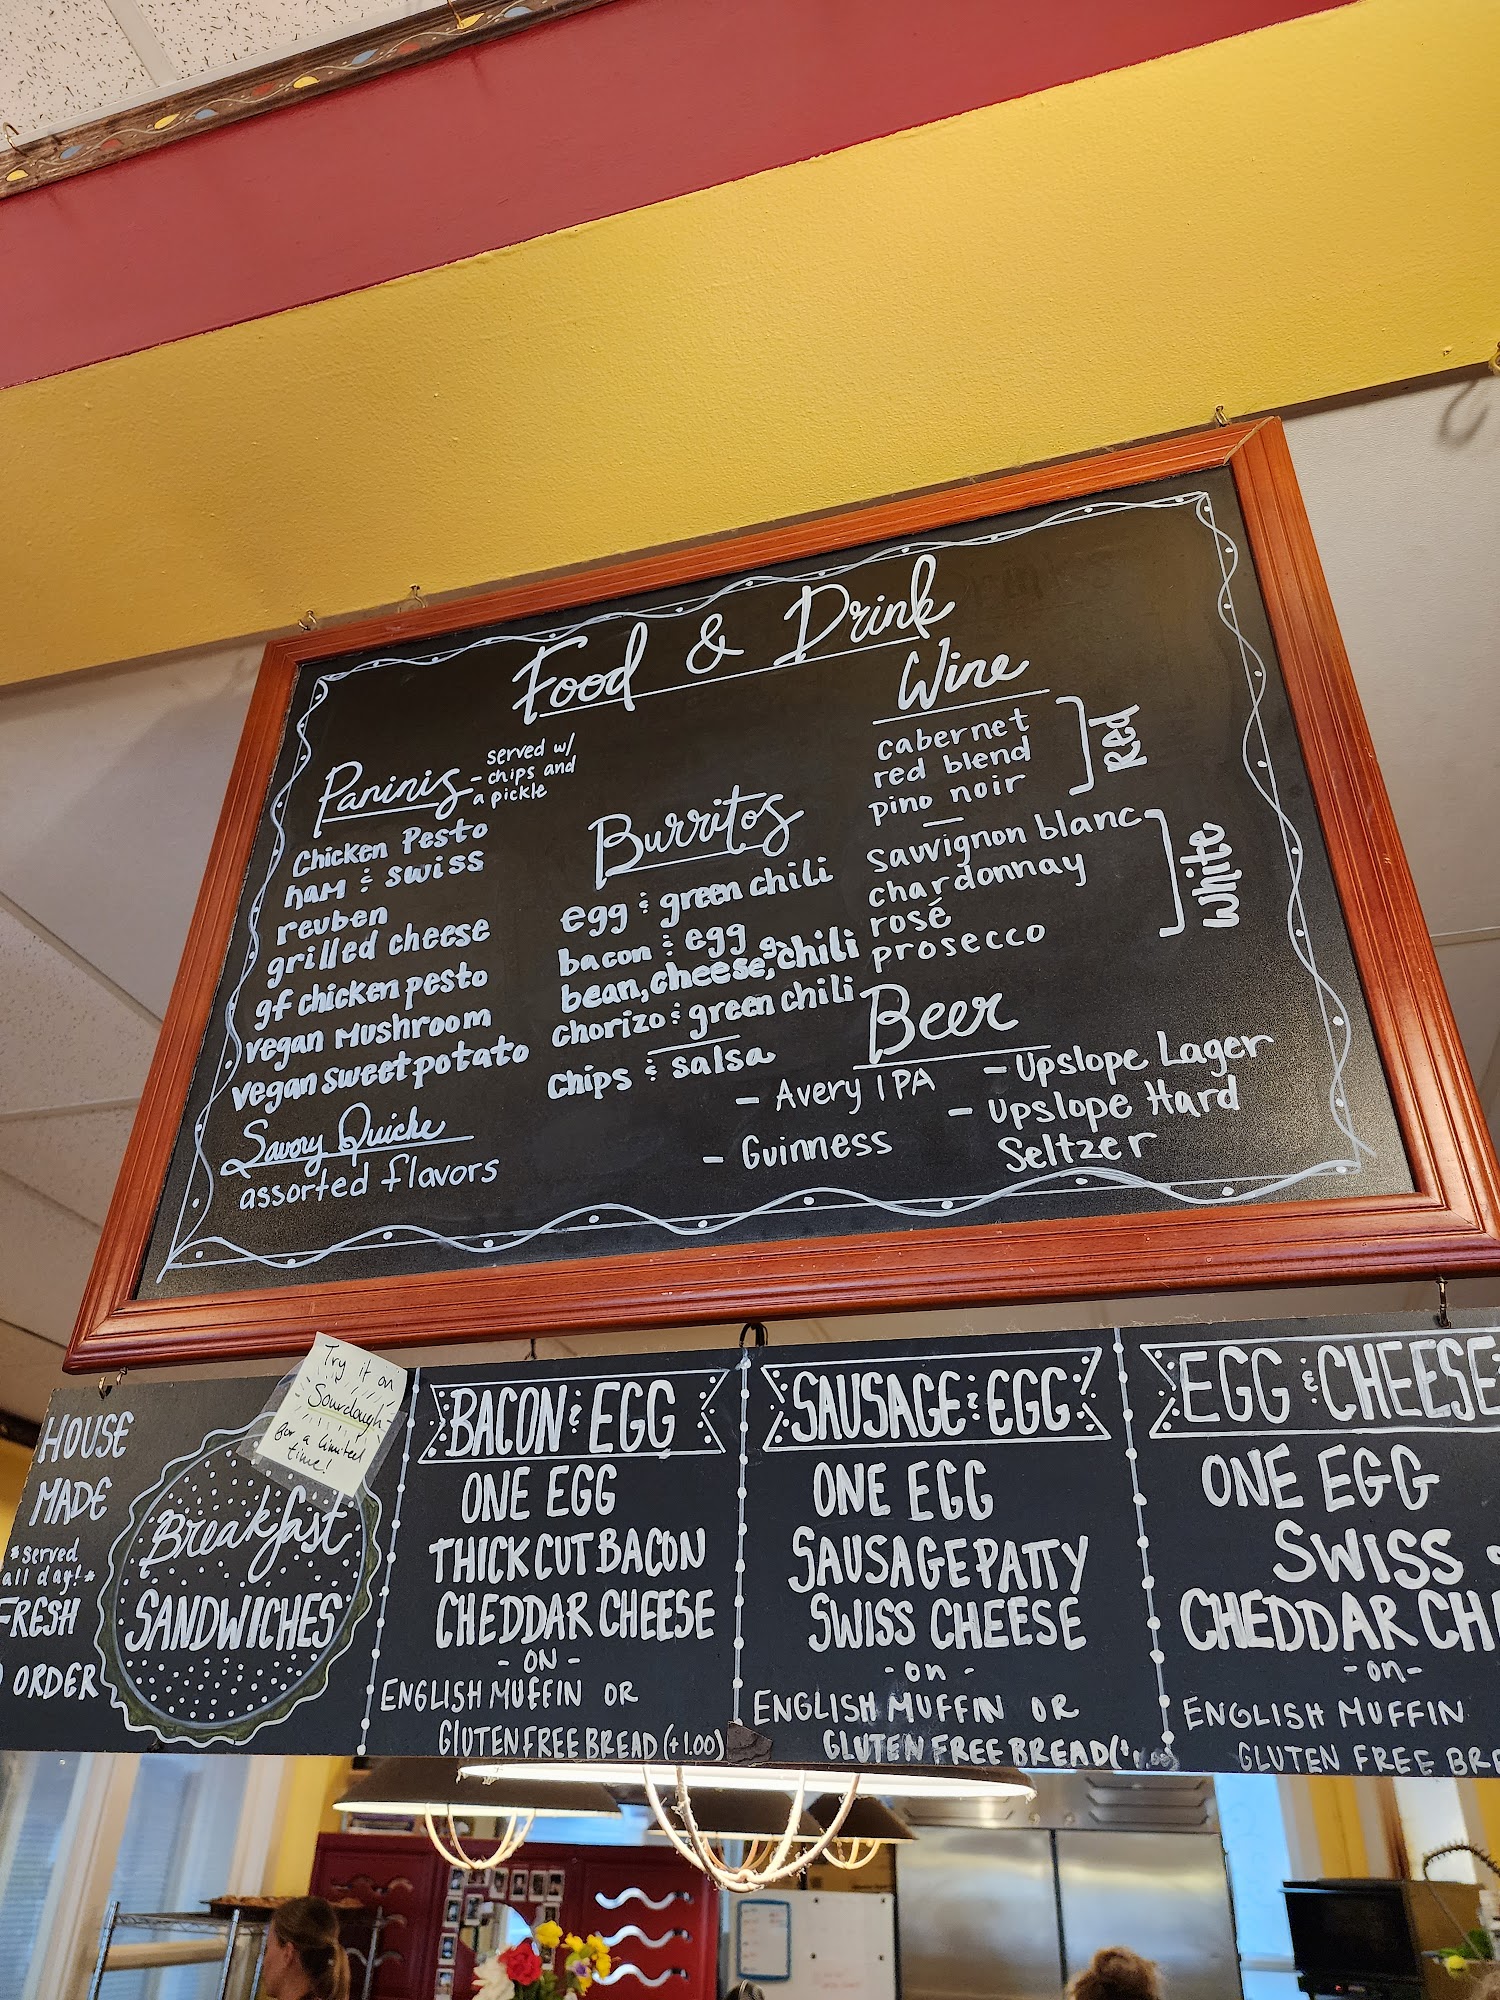 Food & Drink
Paninis
- served w/
chips and
a pickle
Chicken Pesto
ham & swiss
reuben
grilled cheese
gf chicken pesto
vegan mushroom
vegan sweet potato
Savory Quiche
assorted flavors
Burritos
egg & green chili
bacon & egg
bean, cheese, & chili
chorizo & green chili
chips & salsa
Wine
cabernet
red blend
pino noir
Red
Sauvignon blanc
chardonnay
rosé
prosecco
White
Beer
- Avery IPA
- Guinness
- Upslope Lager
- Upslope Hard
Seltzer
Try it on
Sourdough
for a limited
time!
HOUSE
MADE
*served
all day!*
FRESH
ORDER
Breakfast
SANDWICHES
BACON & EGG
ONE EGG
THICK CUT BACON
CHEDDAR CHEESE
- ON -
ENGLISH MUFFIN OR
GLUTEN FREE BREAD (+1.00)
SAUSAGE & EGG
ONE EGG
SAUSAGE PATTY
SWISS CHEESE
- on -
ENGLISH MUFFIN OR
GLUTEN FREE BREAD
EGG & CHEESE
ONE EGG
SWISS
CHEDDAR CH
- on -
ENGLISH MUFFIN
GLUTEN FREE BRE